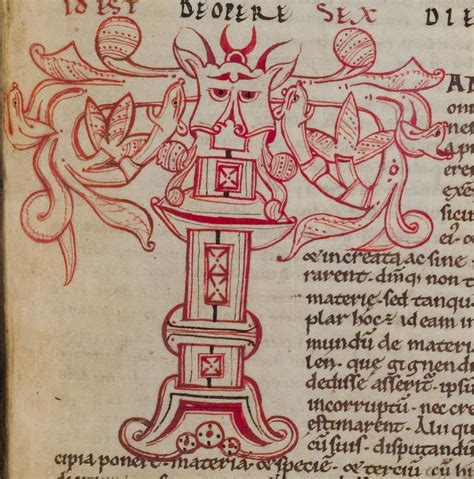 ID IST DEOPERE SEX DIE
AN
om
exe
sicu
& increata ac sine
rarent· dm̄q; non
materie· sed tanqu
plar hoc ÷ ideam in
mundū de materia
len· que gignend
dedisse asserit· ipsu
incorruptū· nec cre
estimarent· Alii qu
cū suis· disputandū
cipia ponere· materiā & speciē· & terciū cū hi